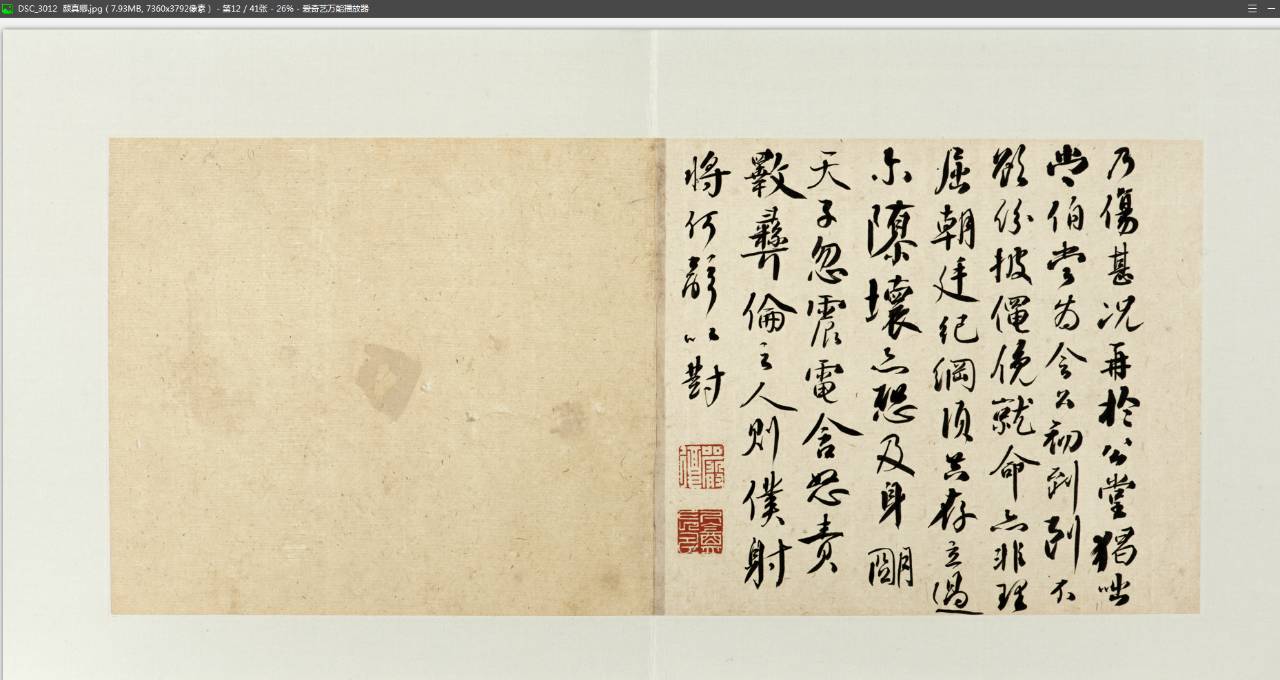 DSC_3012 颜真卿.jpg ( 7.93MB, 7360x3792像素 ) - 第12 / 41张 - 26% - 爱奇艺万能播放器
乃傷甚況再於公堂猲咄
常伯當為令公初到到不
欲紛披僶俛就命亦非理
屈朝廷紀綱須共存立過
尒隳壞亦恐及身明
天子忽震電含怒責
斁彝倫之人則僕射
將何辭以對